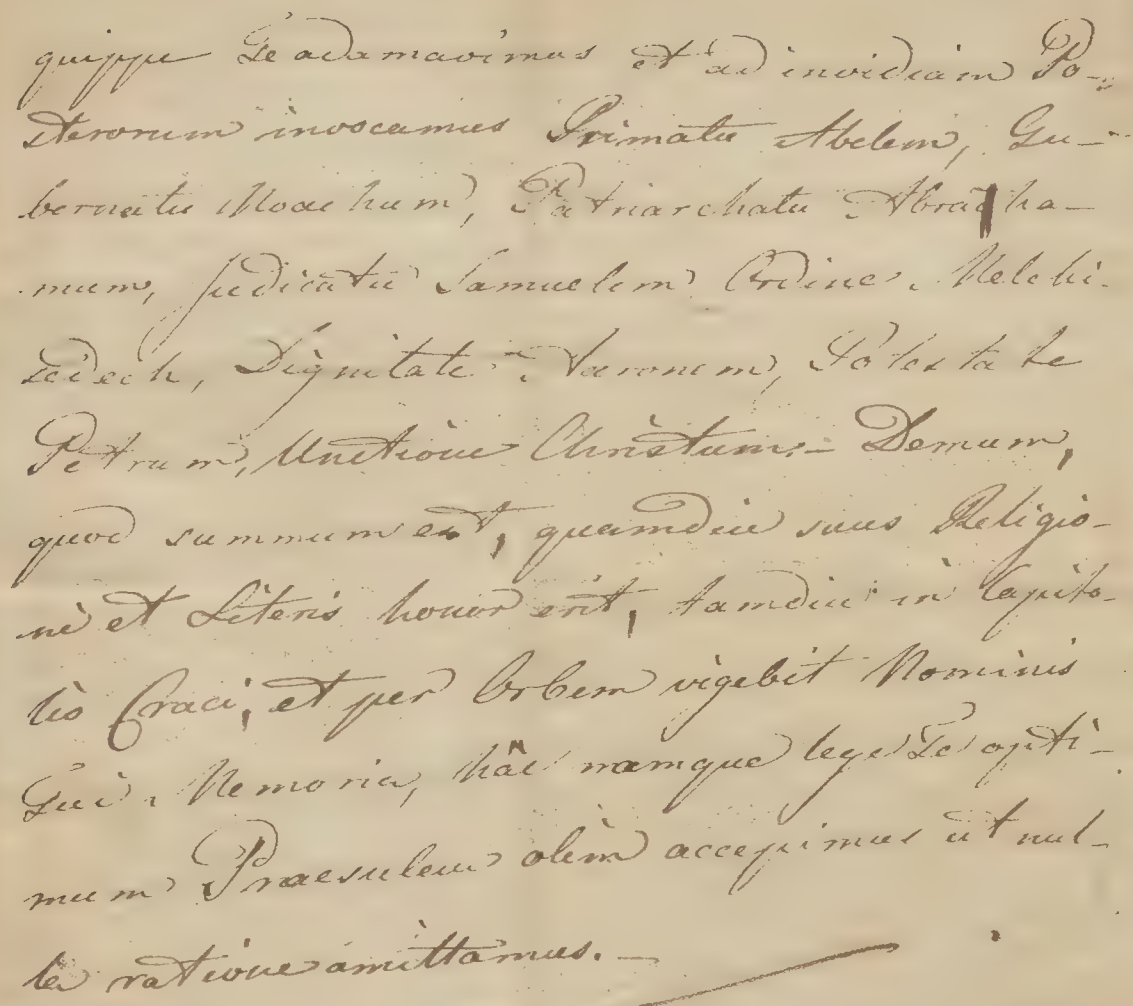 quippe Te adamavimus et ad invidiam Po-
sterorum invocamus Primatu Abelem, Gu-
bernatu Noachum, Patriarchatu Abraha-
mum, Judicatu Samuelem Ordine Melchi-
sedech, Dignitate Aaronem, Potestate
Petrum, Unctione Christum. – Demum,
quod summum est, quamdiu suus Religio-
ni et Literis honor erit, tamdiu in Capito-
lio Craci, et per Orbem vigebit Nominis
Tui Memoria, hac namque lege Te opti-
mum Praesulem olim accepimus ut nul-
la ratione amittamus. –